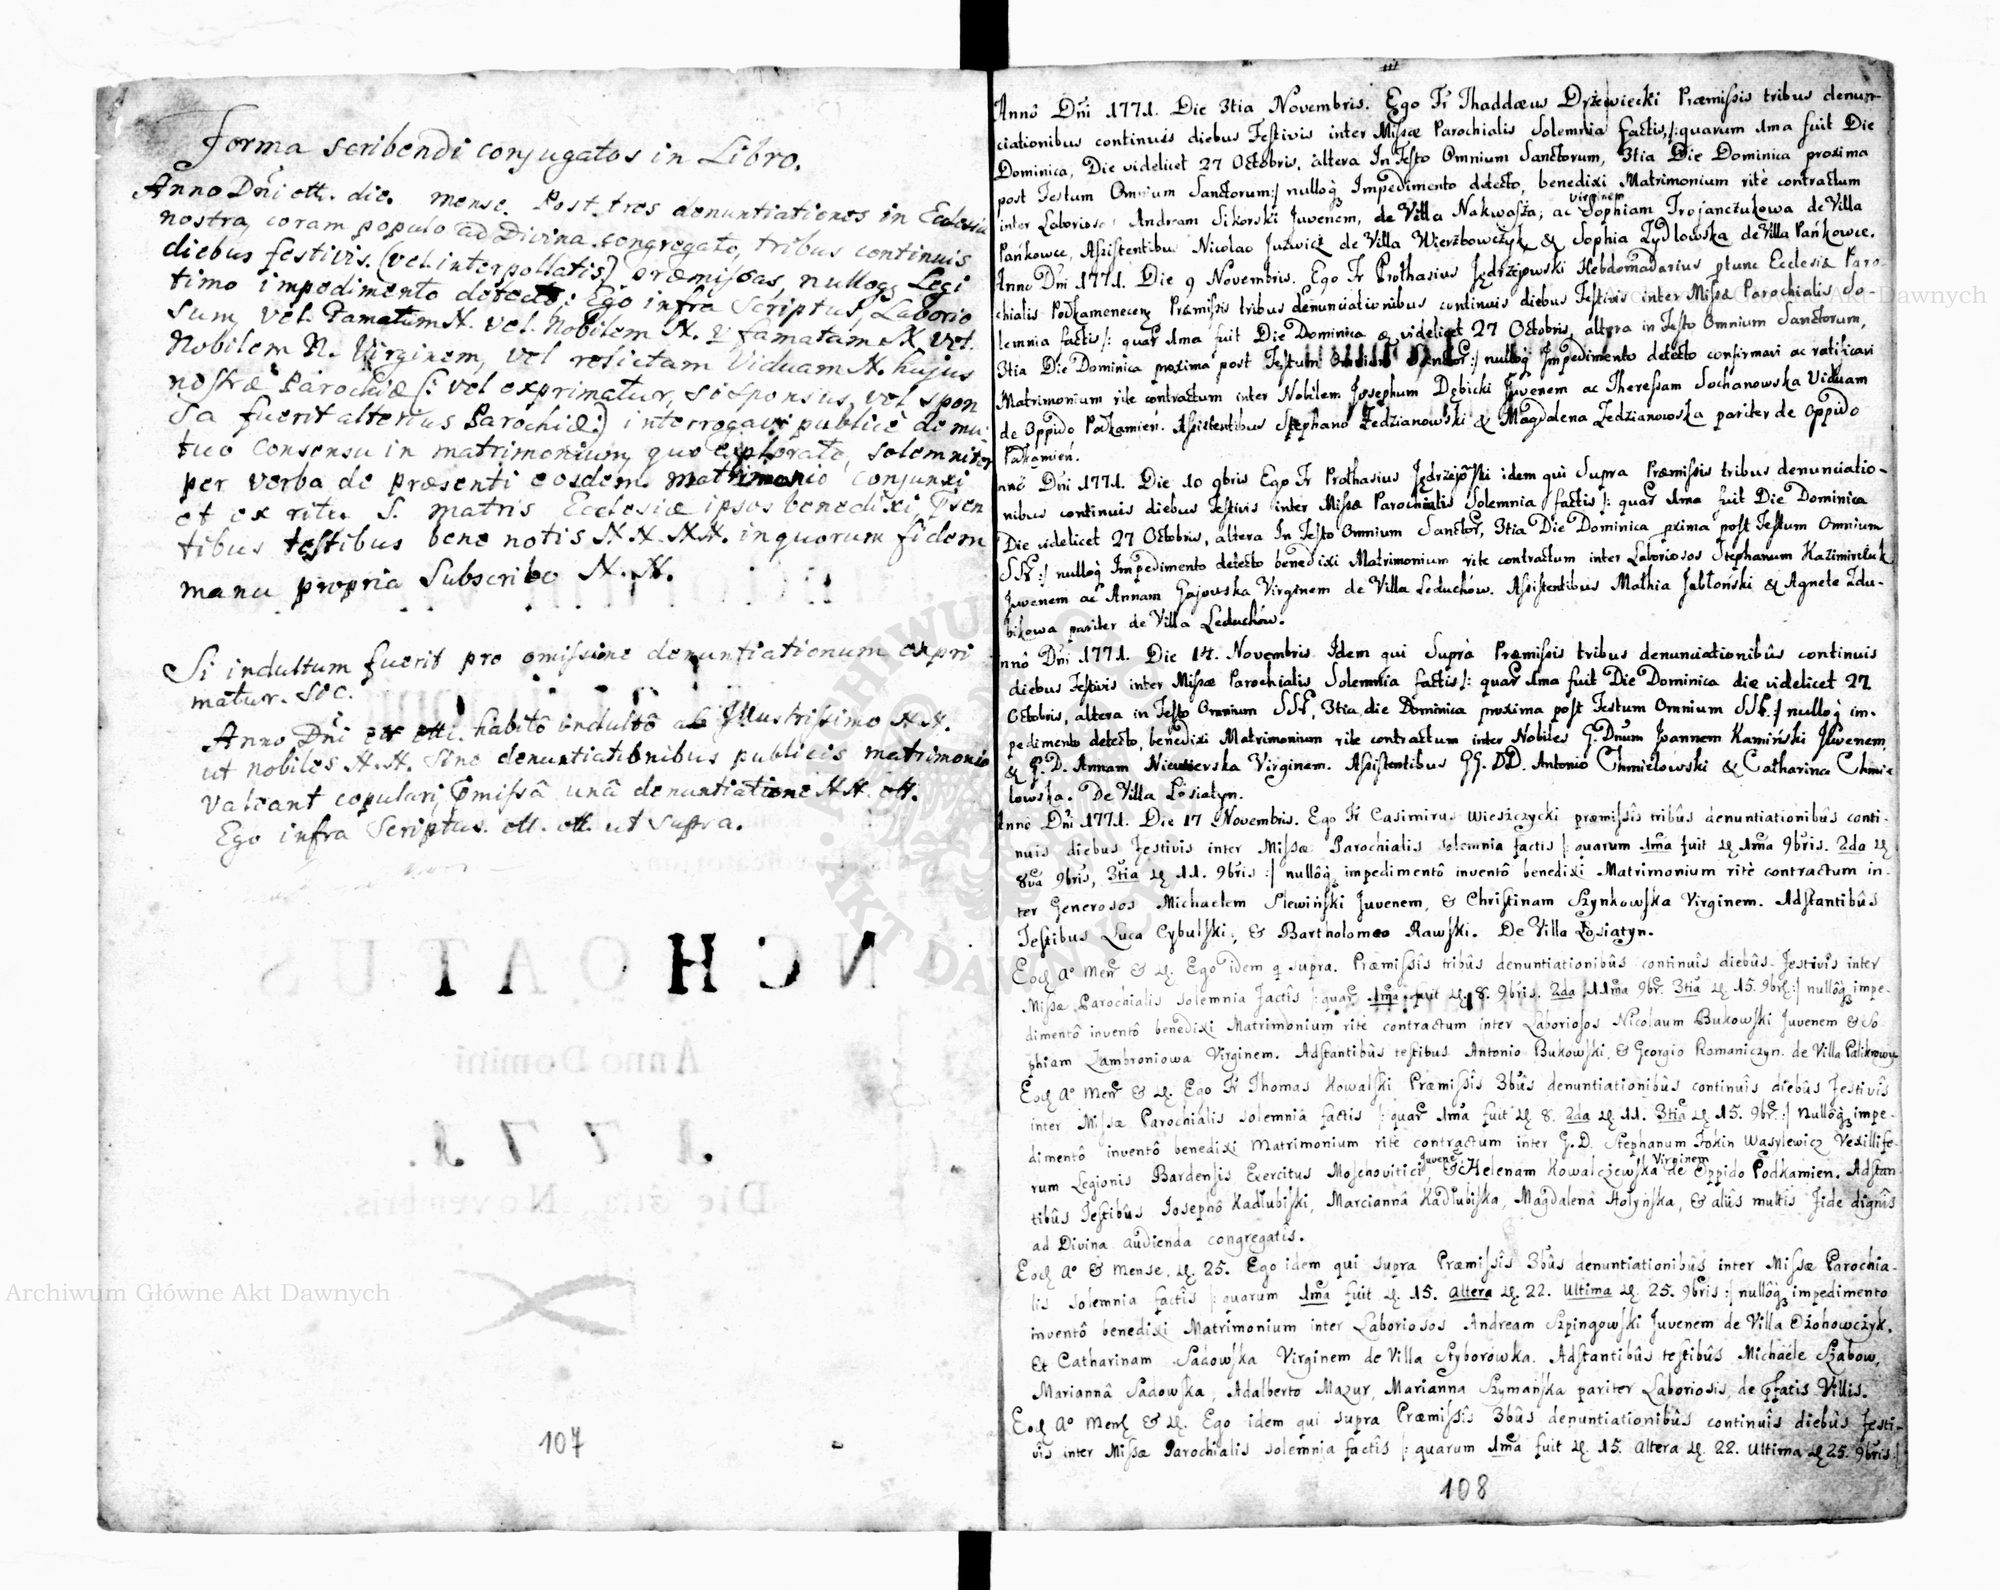 Forma scribendi conjugatos in Libro.
Anno Dñi ett. die. mense. Post tres denuntiationes in Ecclesia
nostra, coram populo ad Divina congregato, tribus continuis
diebus festivis. (vel interpollatis) præmissas, nulloq; Legi
timo impedimento detecto: Ego infra Scriptus, Laborio
sum, vel Famatum N. vel. Nobilem N. & famatam N. vel.
Nobilem N. Virginem, vel relictam Viduam N. hujus
nostræ Parochiæ (: vel exprimatur, si sponsus, vel spon
sa fuerit alterius Parochiæ:) interrogavi publicè de mu
tuo consensu in matrimonium, quo explorato, solemniter
per verba de præsenti eosdem matrimonio conjunxi
et ex ritu S. matris Ecclesiæ ipsos benedixi, Psen
tibus testibus bene notis N.N. N.N. in quorum fidem
manu propria Subscribo N. N.
Si indultum fuerit pro omissione denuntiationum expri
matur. sic.
Anno Dñi ett. habitô indultô ab Illustrissimo N.N.
ut nobiles N.N. sine denuntiationibus publicis matrimonio
valeant copulari, Pmissâ unâ denuntiatione N.N. ett.
Ego infra Scriptus. ett. ett. ut supra.
NCHOATUS
Anno Domini
1771.
Die 3tia Novembris.
107
Annô Dñi 1771. Die 3tia Novembris. Ego Fr Thaddæus Drzewiecki Præmissis tribus denun-
ciationibus continuis diebus Festivis inter Missæ Parochialis Solemnia factis, /:quarum 1ma fuit Die
Dominica, Die videlicet 27 Octobris, altera In Festo Omnium Sanctorum, 3tia Die Dominica proxima
post Festum Omnium Sanctorum:/ nulloq; Impedimento detecto, benedixi Matrimonium ritè contractum
inter Laboriosos Andream Sikorski Juvenem, de Villa Nakwasza, ac Virginem Sophiam Trojanczukowa de Villa
Pańkowce, Assistentibus Nicolao Juzwicz de Villa Wierzbowczyk & Sophia Zydlowska de Villa Pańkowce.
Anno Dñi 1771. Die 9 Novembris. Ego Fr Prothasius Jędrzejowski Hebdomadarius ptunc Ecclesiæ Paro-
chialis Podkamenecen. Præmissis tribus denunciationibus continuis diebus Festivis inter Missæ Parochialis So-
lemnia factis/: quar 1ma fuit Die Dominica videlicet 27 Octobris, altera in Festo Omnium Sanctorum,
3tia Die Dominica proxima post Festum Omnium Sanctor:/ nulloq; Impedimento detecto confirmavi ac ratificavi
Matrimonium rite contractum inter Nobilem Josephum Dębicki Juvenem ac Theressam Sochanowska Viduam
de Oppido Podkamień. Assistentibus Stephano Zedzianowski & Magdalena Zedzianowska pariter de Oppido
Podkamień.
nnô Dñi 1771. Die 10 9bris Ego Fr Prothasius Jędrzejowski idem qui Supra Præmissis tribus denunciatio-
nibus continuis diebus Festivis inter Missæ Parochialis Solemnia factis /: quar 1ma fuit Die Dominica
Die videlicet 27 Octobris, altera In Festo Omnium Sanctor, 3tia Die Dominica pxima post Festum Omnium
SS:/ nulloq; Impedimento detecto benedixi Matrimonium rite contractum inter Laboriosos Stephanum Kazimirczuk
Juvenem ac Annam Gajowska Virginem de Villa Leduchów. Assistentibus Mathia Jabłoński & Agnete Zdu-
bikowa pariter de Villa Leduchów.
nnô Dñi 1771. Die 14. Novembris Idem qui Suprà Præmissis tribus denunciationibûs continuis
diebus Festivis inter Missæ Parochialis Solemnia factis/: quar 1ma fuit Die Dominica die videlicet 27
Octobris, altera in Festo Omnium SSr, 3tia die Dominica proxima post Festum Omnium SSr:/ nulloq; im-
pedimento detecto, benedixi Matrimonium rite contractum inter Nobiles G.Dnum Joannem Kamiński Juvenem,
& G.D. Annam Virginem. Assistentibus GG.DD. Antonio Chmielowski & Catharina Chmie
lowska. De Villa Łosiatyn.
Annô Dñi 1771. Die 17 Novembris. Ego Fr Casimirus Wieszczycki præmissîs tribûs denuntiationibûs conti-
nuis diebus Festivis inter Missæ Parochialis solemnia factis /: quorum 1ma fuit d; 1ma 9bris. 2da d;
8va 9bris, 3tia d; 11. 9bris:/ nullôq; impedimentô inventô benedixi Matrimonium ritè contractum in-
ter Generosos Michaelem Slewiński Juvenem, & Christinam Szynkowska Virginem. Adstantibûs
Testibus Luca Cybulski, & Bartholomeo Rawski. De Villa Łosiatyn.
Eod; Aº Men & d;. Ego idem q supra. Præmissîs tribûs denuntiationibûs continuîs diebûs Festivis inter
Missæ Parochialis solemnia factîs /: quar 1ma fuit d; 8. 9bris. 2da 11ma 9br. 3tia d; 15. 9br:/ nullôq; impe-
dimentô inventô benedixi Matrimonium rite contractum inter Laboriosos Nicolaum Bukowski Juvenem & So
phiam Zambroniowa Virginem. Adstantibûs testibus Antonio Bukowski, & Georgio Romaniczyn. de Villa Palikrowy
Eod; Aº Men & d;. Ego Fr Thomas Kowalski Præmissîs 3bûs denuntiationibûs continuîs diebûs Festivîs
inter Missæ Parochialis solemnia factis /: quar 1ma fuit d; 8. 2da d; 11. 3tia d; 15. 9br:/ nullôq; impe-
dimentô inventô benedixi Matrimonium ritè contractum inter G.D. Stephanum Fokin Wasylewicz Vexillife-
rum Legionis Bardensis Exercitus Moschovitici Juvenē, & Helenam Kowalczewska Virginem de Oppido Podkamien. Adstan-
tibûs Testibûs Josephô Kadłubiski, Marciannâ Kadłubiska, Magdalenâ Hołyńska, & aliis multis fide dignîs
ad Divina audienda congregatis.
Eod; Aº & Mense, d;. 25. Ego idem qui supra Præmissîs 3bûs denuntiationibûs inter Missæ Parochia-
lis solemnia factis /: quorum 1ma fuit d;. 15. altera d;. 22. Ultima d;. 25. 9bris:/ nullôq; impedimento
inventô benedixi Matrimonium inter Laboriosos Andream Szpingowski Juvenem de Villa Ożohowczyk.
Et Catharinam Sadowska Virginem de Villa Styborówka. Adstantibûs testibûs Michaële Szabow,
Mariannâ Sadowska, Adalberto Mazur, Marianna Szymańska pariter Laboriosis, de pfatis Villis.
Eod; Aº Men & d;. Ego idem qui supra Præmissîs 3bûs denuntiationibûs continuîs diebûs Festi-
vîs inter Missæ Parochialis solemnia factîs /: quarum 1ma fuit d;. 15. Altera d;. 22. Ultima d; 25. 9bris:/
108
Archiwum Główne Akt Dawnych
Archiwum Główne Akt Dawnych
ARCHIWUM GŁÓWNE AKT DAWNYCH